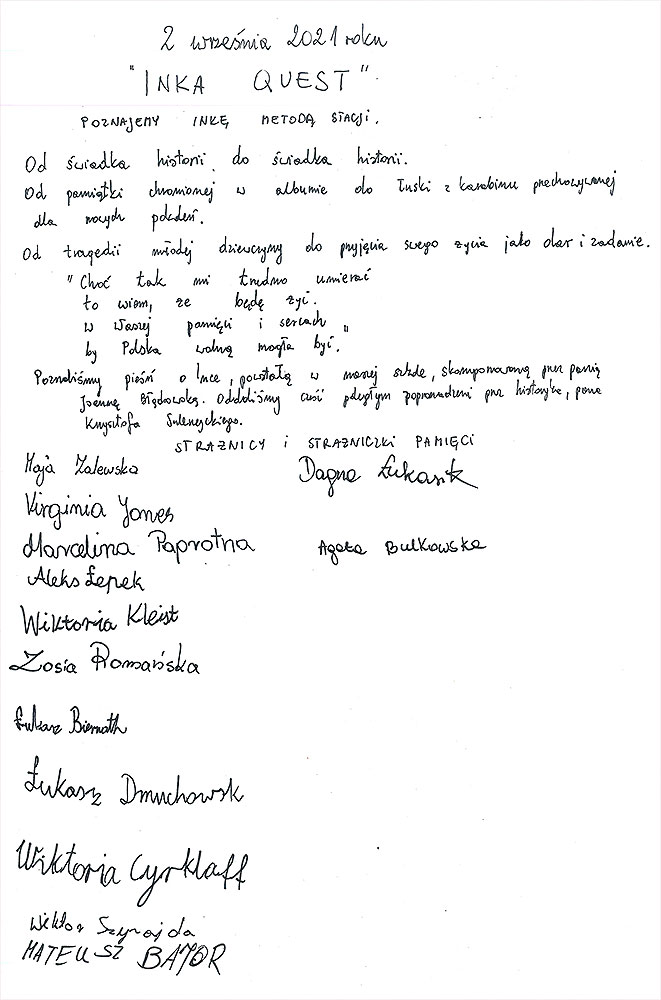 2 września 2021 roku
"INKA QUEST"
POZNAJEMY INKĘ METODĄ STACJI.
Od świadka historii do świadka historii.
Od pamiątki chronionej w albumie do łuski z karabinu przechowywanej
dla nowych pokoleń.
Od tragedii młodej dziewczyny do przyjęcia swego życia jako dar i zadanie.
"Choć tak mi trudno umierać
to wiem, że będę żyć.
w Waszej pamięci i sercach
by Polska wolną mogła być."
Poznaliśmy pieśń o Ince, powstałą w naszej szkole, skomponowaną przez panią
Joannę Błędowską. Oddaliśmy cześć poległym poprowadzeni przez historyka, pana
Krzysztofa
STRAŻNICY i STRAŻNICZKI PAMIĘCI
Maja Zalewska
Dagna Łukasik
Virginia Jones
Marcelina Paprotna
Agata Bulkowska
Aleks Łepek
Wiktoria Kleist
Zosia Romańska
Łukasz Biernath
Łukasz Dmuchowsk
Wiktoria Cyrklaff
Wiktor
MATEUSZ BAJOR